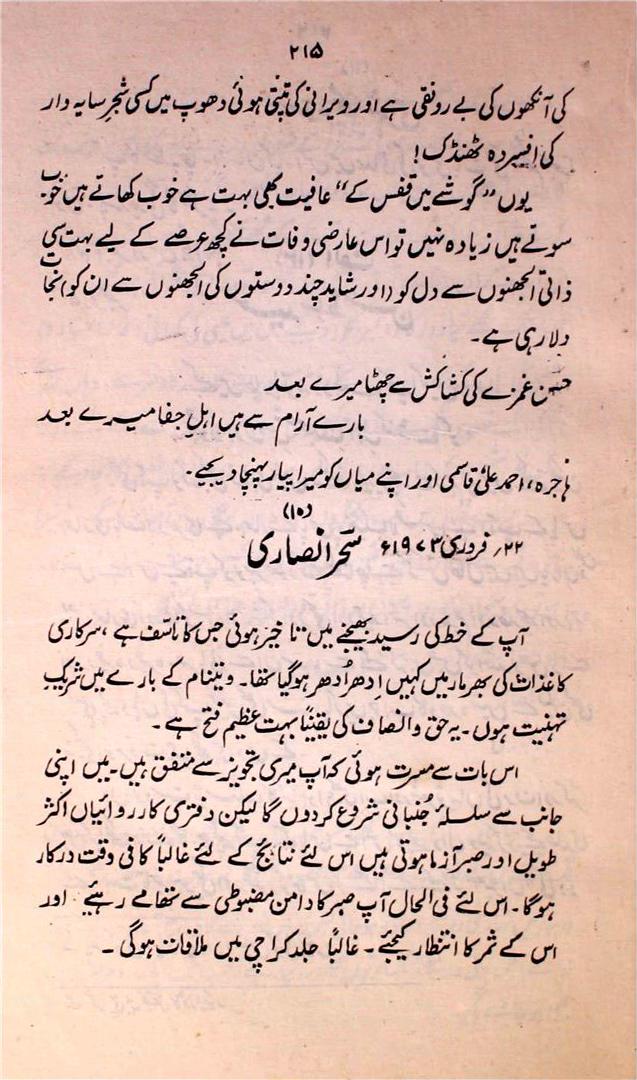 ۲۱۵
کی آنکھوں کی بے رونقی ہے اور ویرانی کی تپتی ہوئی دھوپ میں کسی شجرِ سایہ دار
کی افسردہ ٹھنڈک!
یوں "گوشے میں قفس کے" عافیت بھی بہت ہے خوب کھاتے ہیں خوب
سوتے ہیں زیادہ نہیں تو اس عارضی وفات نے کچھ عرصے کے لیے بہت سی
ذاتی الجھنوں سے دل کو (اور شاید چند دوستوں کی الجھنوں سے ان کو) نجات
دلا رہی ہے۔
حسن غمزے کی کشاکش سے چھٹا میرے بعد
بارے آرام سے ہیں اہلِ جفا میرے بعد
ہاجرہ، احمد علی قاسمی اور اپنے میاں کو میرا پیار پہنچا دیجیے۔
(۱۰)
۲۲؍ فروری ۱۹۷۳ء سحر انصاری
آپ کے خط کی رسید بھیجنے میں تاخیر ہوئی جس کا تاسّف ہے، سرکاری
کاغذات کی بھرمار میں کہیں اِدھر اُدھر ہو گیا تھا۔ ویتنام کے بارے میں شریکِ
تہنیت ہوں۔ یہ حق و انصاف کی یقیناً بہت عظیم فتح ہے۔
اس بات سے مسرت ہوئی کہ آپ میری تجویز سے متفق ہیں۔ میں اپنی
جانب سے سلسلۂ جُنبانی شروع کر دوں گا لیکن دفتری کارروائیاں اکثر
طویل اور صبر آزما ہوتی ہیں اس لئے نتائج کے لئے غالباً کافی وقت درکار
ہوگا۔ اس لئے فی الحال آپ صبر کا دامن مضبوطی سے تھامے رہیئے اور
اس کے ثمر کا انتظار کیجئے۔ غالباً جلد کراچی میں ملاقات ہوگی۔